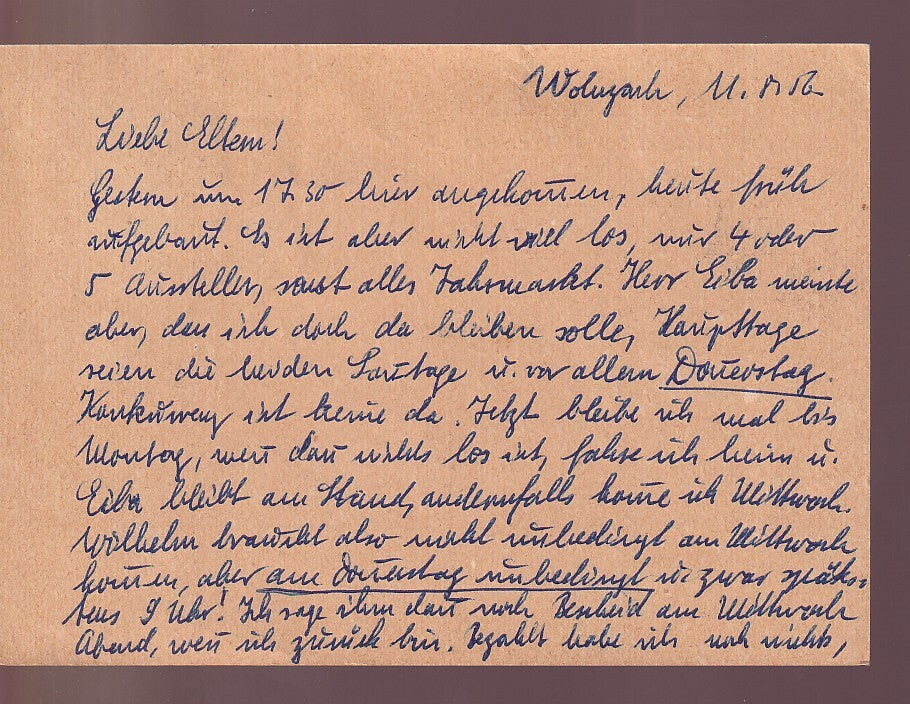 Wolnzach, 11. 8. 56
Liebe Eltern!
Gestern um 17 30 hier angekom̄en, heute früh
aufgebaut. Es ist aber nicht viel los, nur 4 oder
5 Aussteller, sonst alles Jahrmarkt. Herr Eiba meinte
aber, dass ich doch da bleiben solle, Haupttage
seien die beiden Son̄tage u. vor allem Don̄erstag.
Konkurrenz ist keine da. Jetzt bleibe ich mal bis
Montag, wen̄ dan̄ nichts los ist, fahre ich heim u.
Eiba bleibt am Stand, andernfalls kom̄e ich Mittwoch.
Wilhelm braucht also nicht unbedingt am Mittwoch
kom̄en, aber am Don̄erstag unbedingt u. zwar späts=
tens 9 Uhr! Ich sage ihm dan̄ noch Bescheid am Mittwoch
Abend, wen̄ ich zurück bin. Bezahlt habe ich noch nichts,